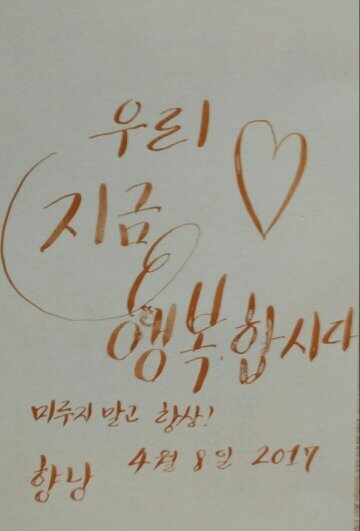 우리
지금
행복.합시다
미루지 말고 항상!
향낭 4월 8일 2017